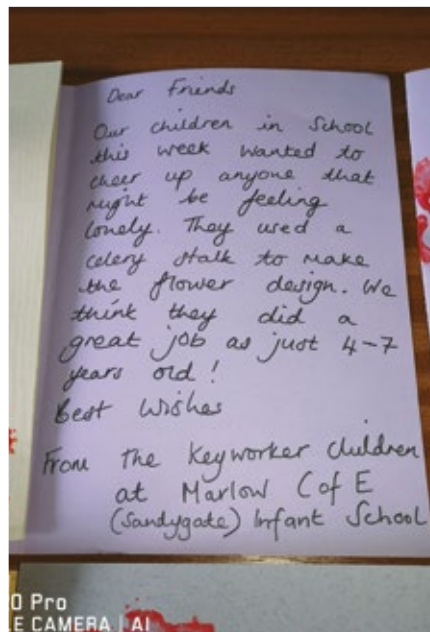 Dear Friends
Our children in School
this week wanted to
cheer up anyone that
might be feeling
lonely. They used a
celery stalk to make
the flower design. We
think they did a
great job as just 4-7
years old!
Best Wishes
From the Keyworker children
at Marlow C of E
(Sandygate) Infant School
0 Pro
LE CAMERA | AI